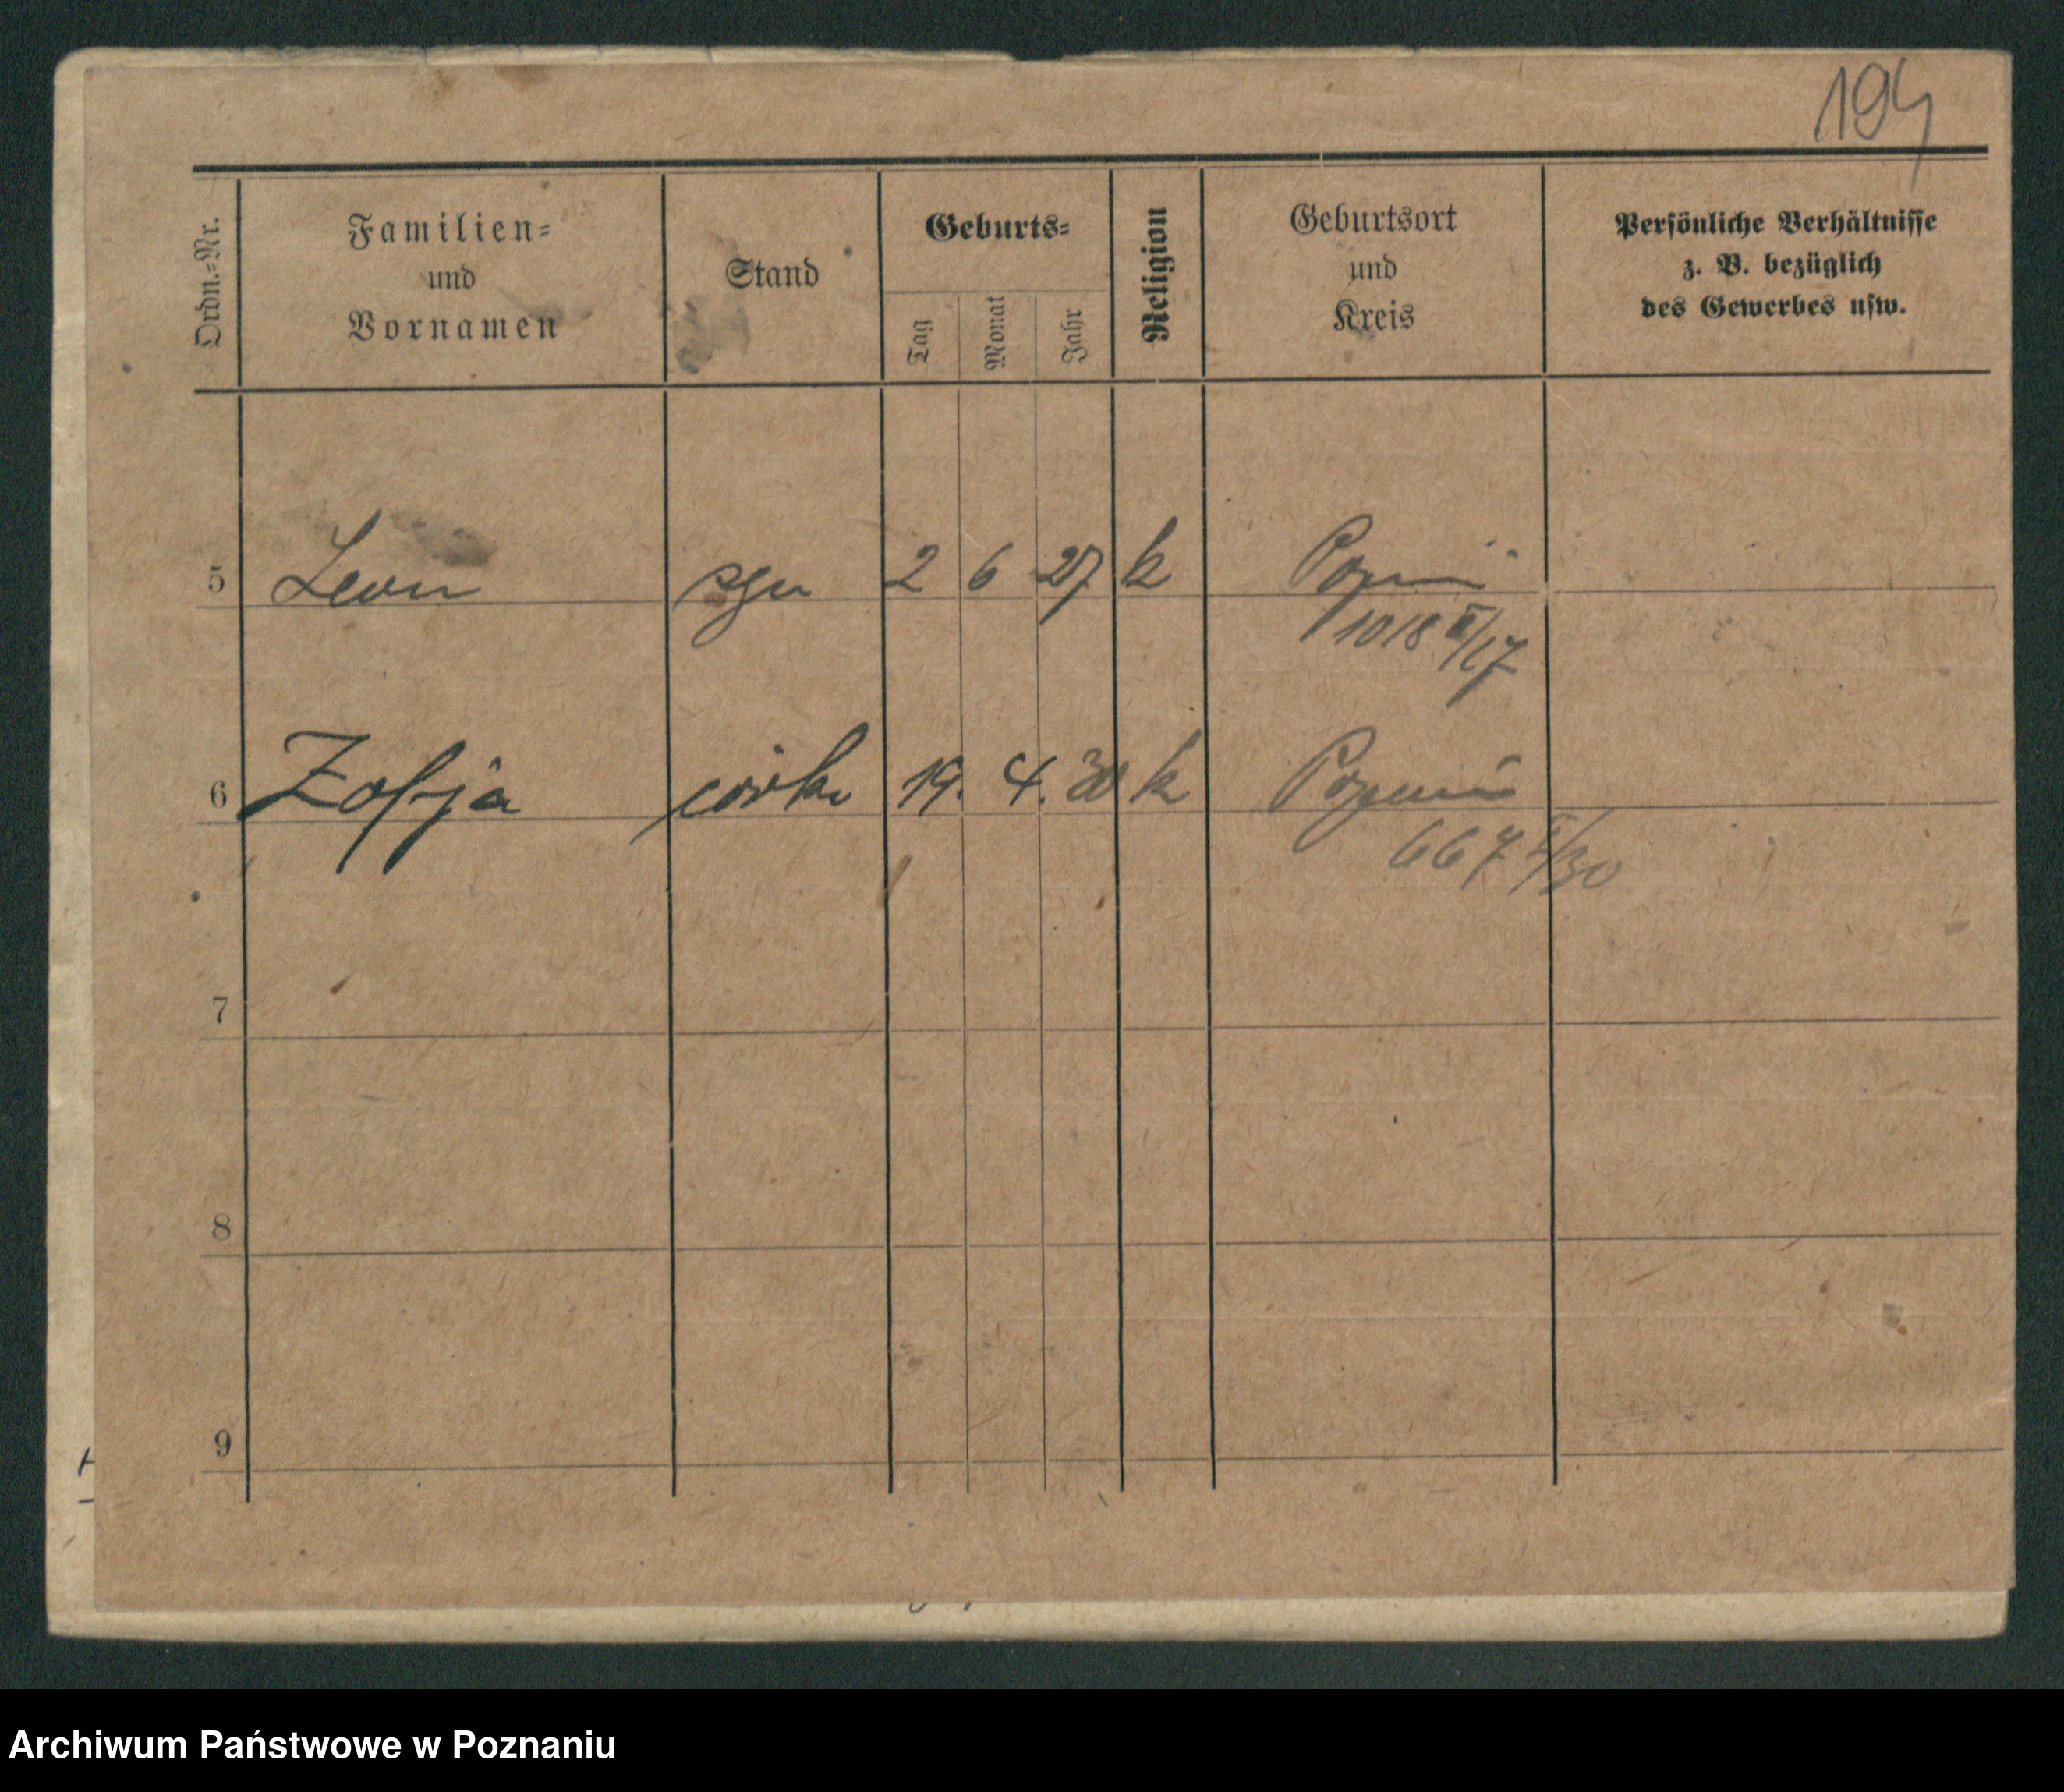 194
Ordn.=Nr.
Familien=
und
Vornamen
Stand
Geburts=
Tag
Monat
Jahr
Religion
Geburtsort
und
Kreis
Persönliche Verhältnisse
z. B. bezüglich
des Gewerbes usw.
5 Leon syn 2 6 27 k Poznań
1018 /27
6 Zofja córka 19. 4. 30 k Poznań
667 /30
7
8
9
Archiwum Państwowe w Poznaniu